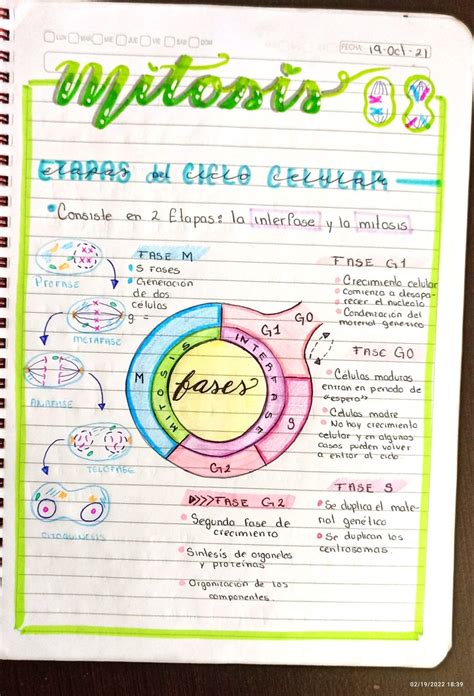 LUN MAR MIE JUE VIE SAB DOM
FECHA: 19-Oct-21
Mitosis
ETAPAS del CICLO CELULAR
• Consiste en 2 Etapas: la interfase y la mitosis.
PROFASE
METAFASE
ANAFASE
TELOFASE
CITOQUINESIS
FASE M
• 5 FASES
• Generación
de dos
células
g =
FASE G1
• Crecimiento celular
• comienza a desapa-
recer el nucleolo
• Condenzación del
material genetico
fases
MITOSIS
INTERFASE
M
G1
G0
S
G2
FASE G0
• Células maduras
entran en periodo de
"espera"
• Células madre
• No hay crecimiento
celular y en algunos
casos pueden volver
a entrar al ciclo
FASE G2
• Segunda fase de
crecimiento
• Sintesis de organelos
y proteínas
• Organización de los
componentes.
FASE S
• Se duplica el mate-
rial genético
• Se duplican los
centrosomas.
02/19/2022 18:39